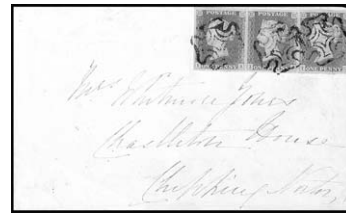 POSTAGE POSTAGE POSTAGE
ONE PENNY ONE PENNY ONE PENNY
Mrs Whitmore Jones
Chastleton House
Chipping Norton